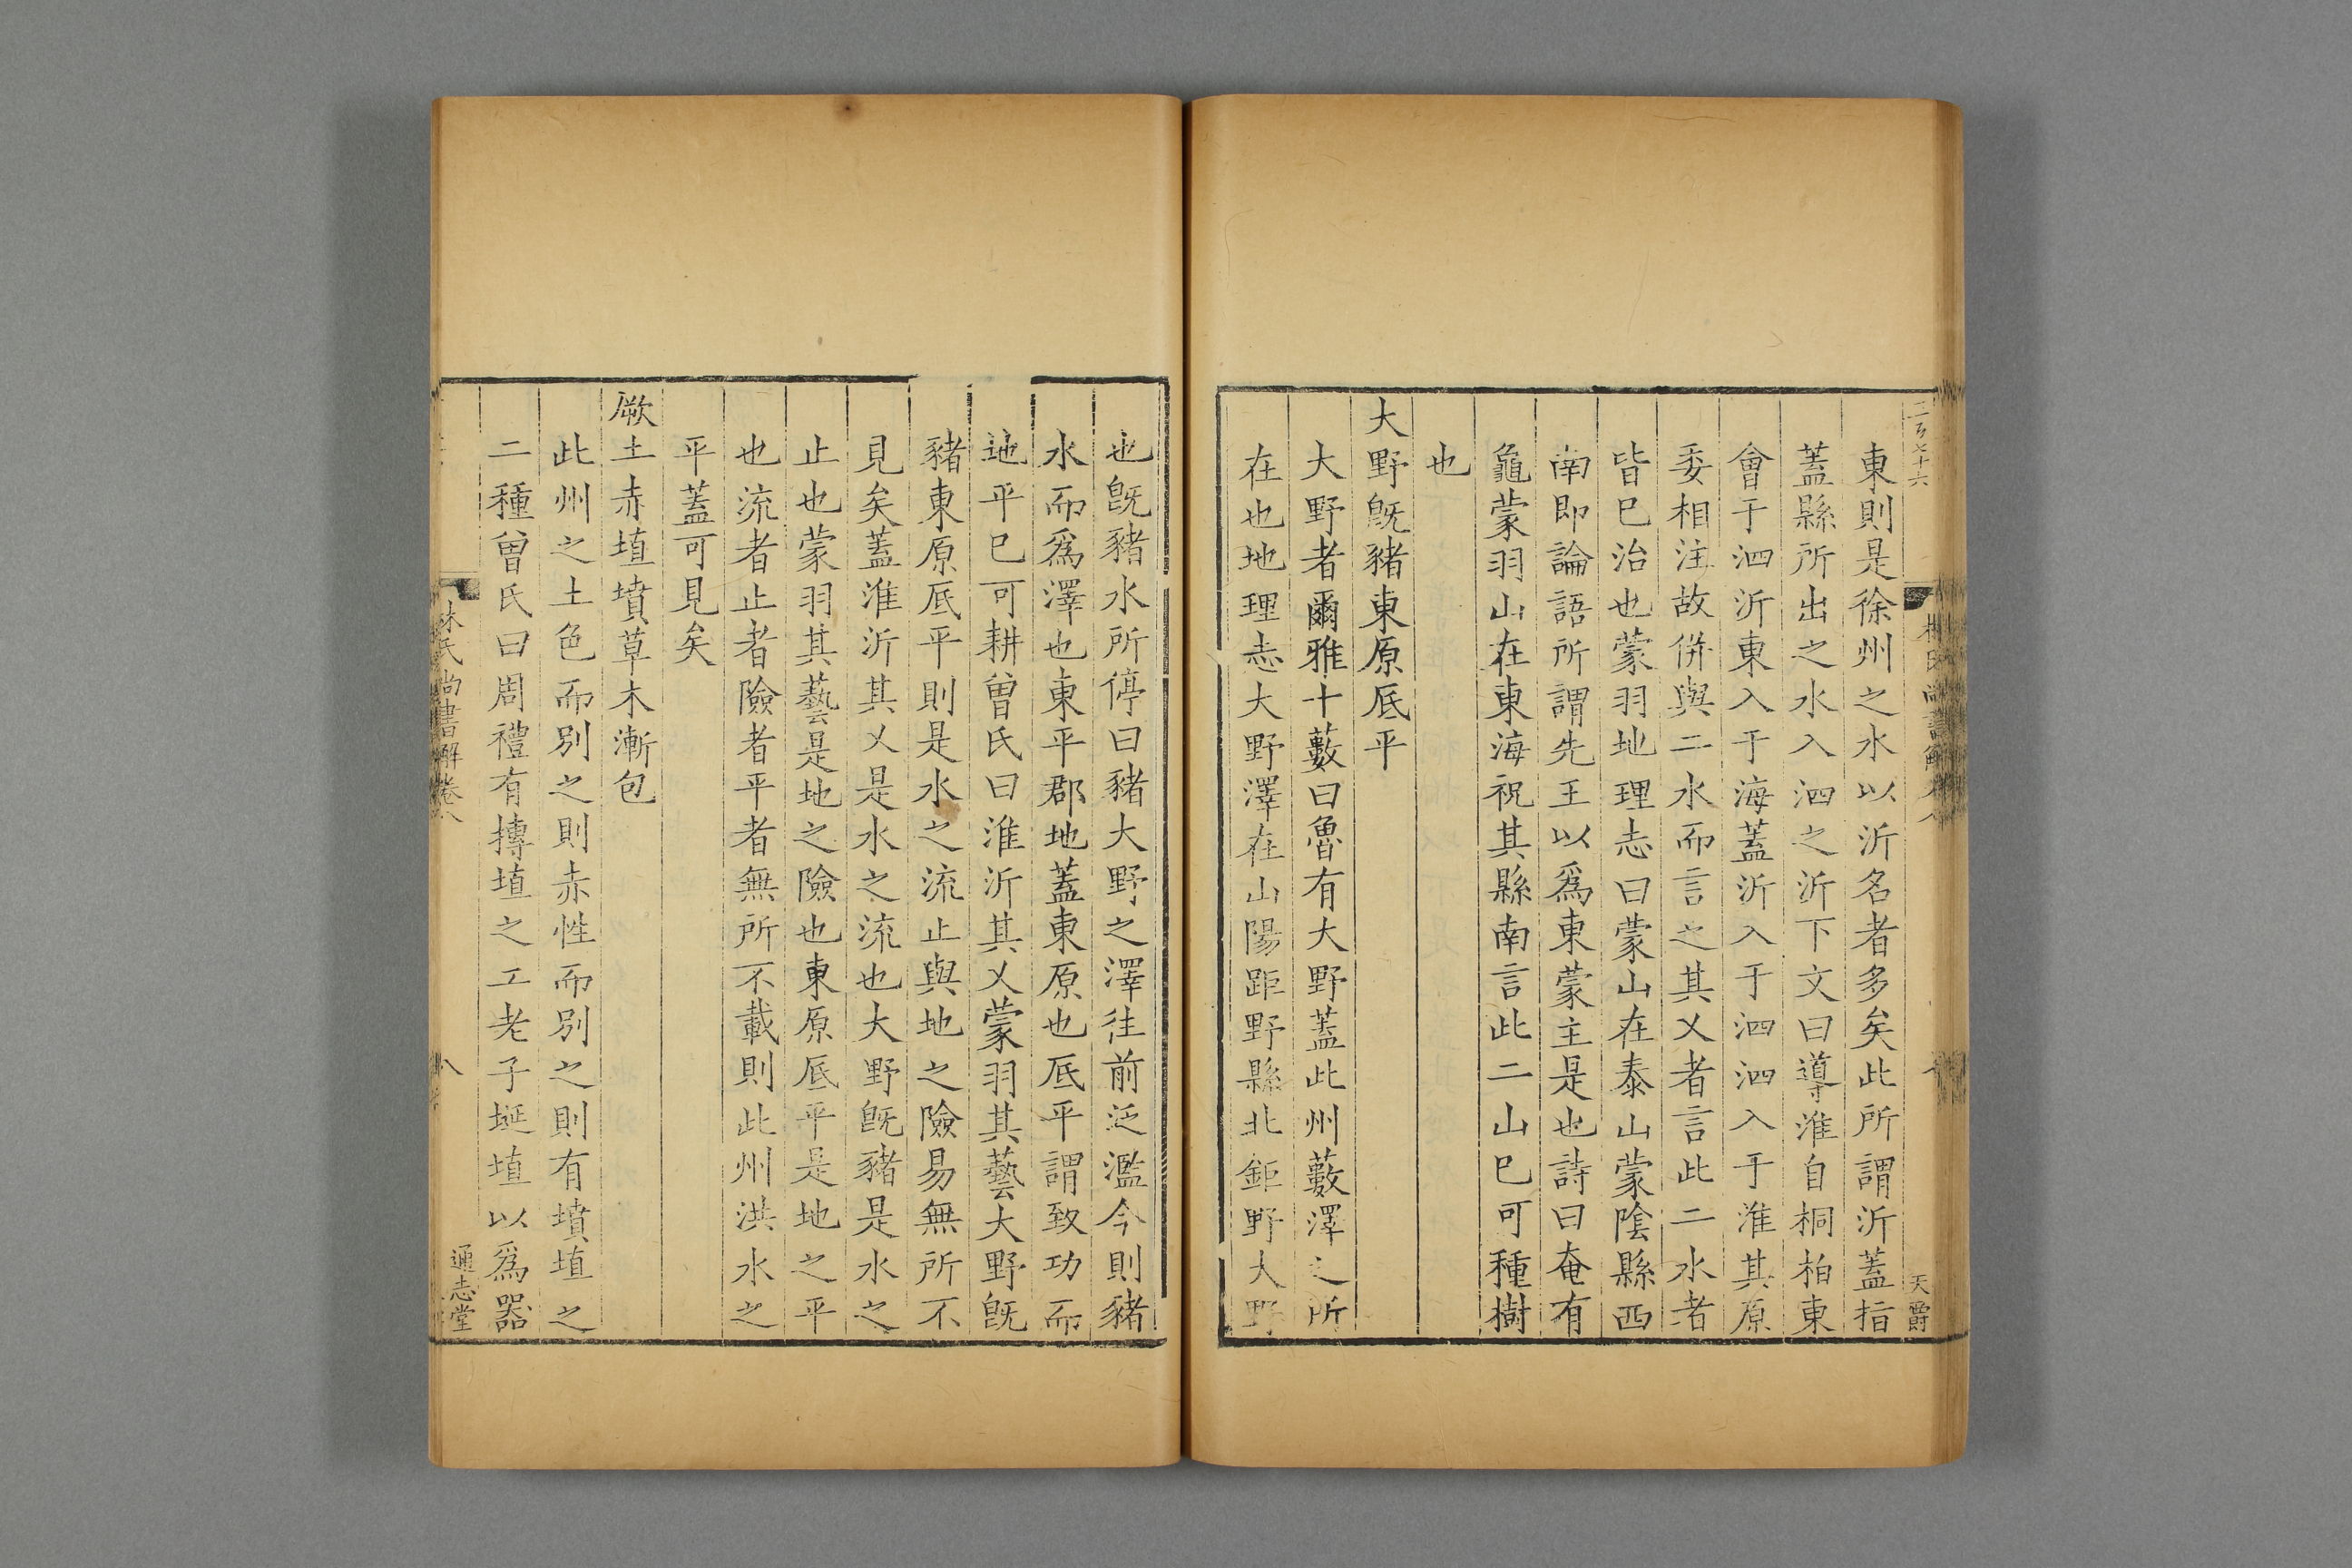 二百七十六
天爵
東則是徐州之水以沂名者多矣此所謂沂蓋指
蓋縣所出之水入泗之沂下文曰導淮自桐柏東
會于泗沂東入于海蓋沂入于泗泗入于淮其原
委相注故併與二水而言之其乂者言此二水者
皆巳治也蒙羽地理志曰蒙山在泰山蒙陰縣西
南即論語所謂先王以爲東蒙主是也詩曰奄有
龜蒙羽山在東海祝其縣南言此二山巳可種樹
也
大野旣豬東原厎平
大野者爾雅十藪曰魯有大野蓋此州藪澤之所
在也地理志大野澤在山陽距野縣北鉅野大野
也旣豬水所停曰豬大野之澤往前泛濫今則豬
水而爲澤也東平郡地蓋東原也厎平謂致功而
地平巳可耕曾氏曰淮沂其乂蒙羽其藝大野旣
豬東原厎平則是水之流止與地之險易無所不
見矣蓋淮沂其乂是水之流也大野旣豬是水之
止也蒙羽其藝是地之險也東原厎平是地之平
也流者止者險者平者無所不載則此州洪水之
平蓋可見矣
厥土赤埴墳草木漸包
此州之土色而別之則赤性而別之則有墳埴之
二種曾氏曰周禮有摶埴之工老子埏埴以爲器
林氏尚書解卷八
八
通志堂